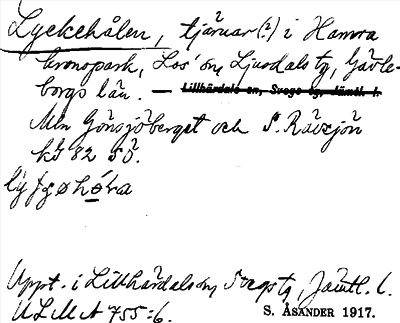 Lyckehålen, tjärnar(?) i Hamra
kronopark, Los' sn, Ljusdals tg, Gävle-
borgs län. — Lillhärdals sn, Svegs tg, Jämtl. l.
Mln Gönsjöberget och S. Rävsjön
82 SÖ.
Uppt. i Lillhärdals sn, Svegs tg, Jämtl. l.
ULMA 755:6. S. ÅSANDER 1917.